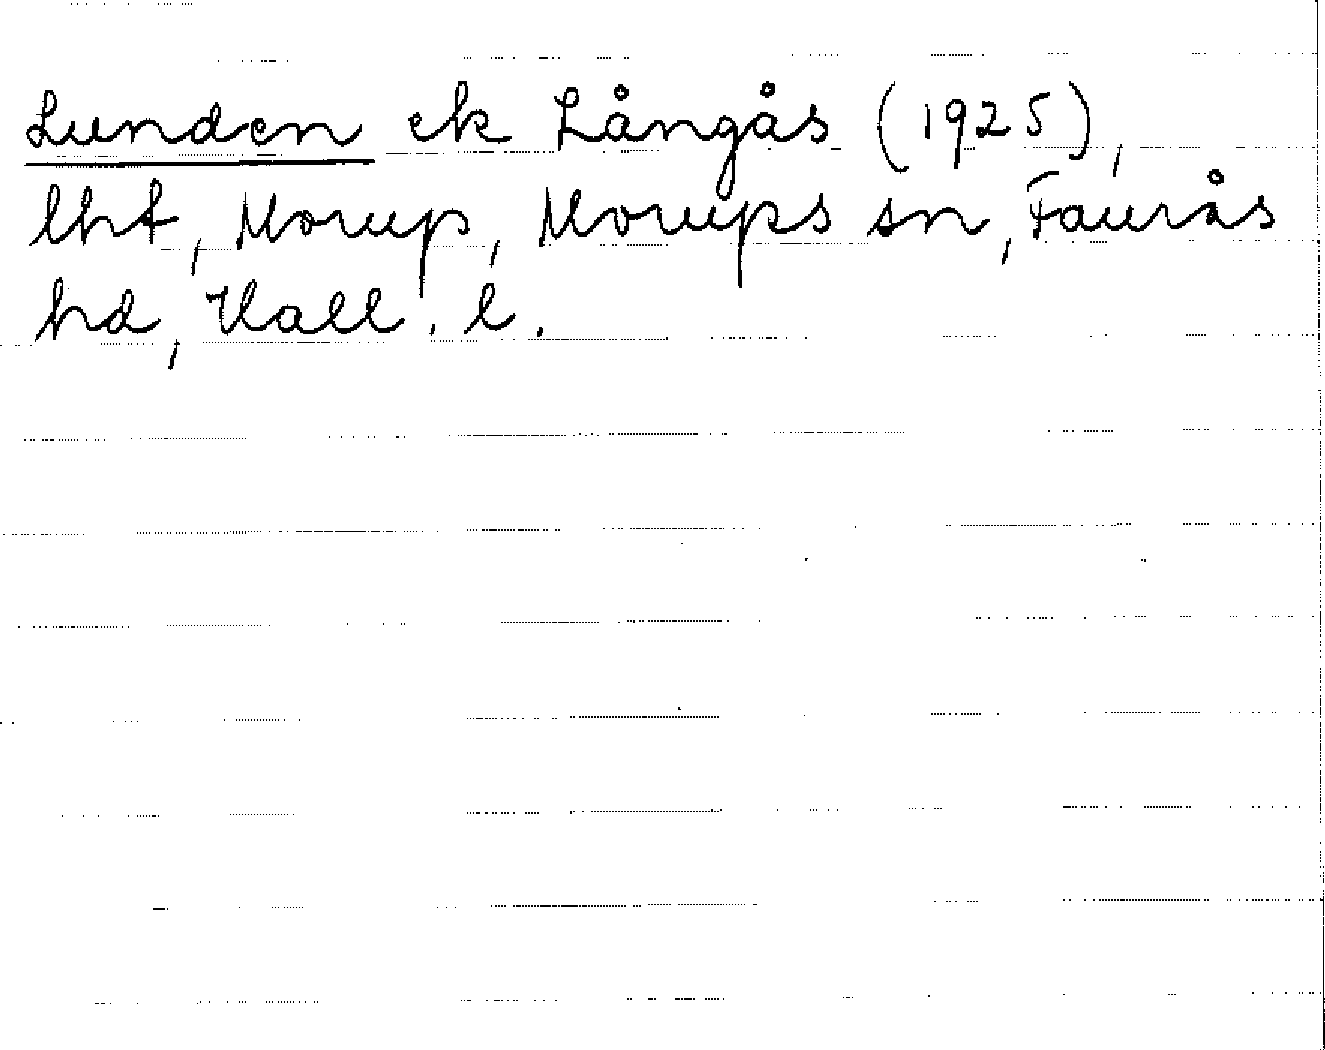 Lunden ek Långås (1925),
lht, Morup, Morups sn, Faurås
hd, Hall. l.